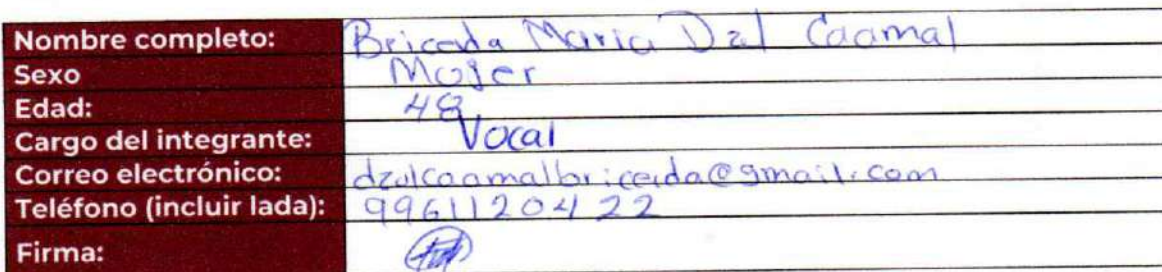 Nombre completo: Briceida Maria Dzul Caamal
Sexo Mujer
Edad: 48
Cargo del integrante: Vocal
Correo electrónico: dzulcaamalbriceida@gmail.com
Teléfono (incluir lada): 9961120422
Firma: